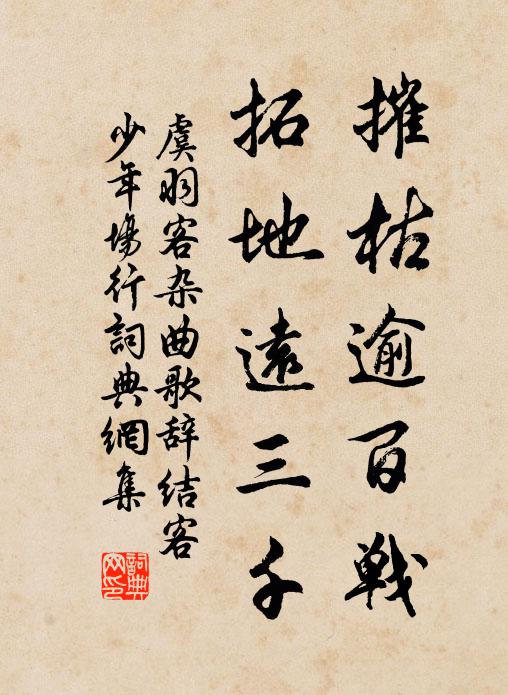 摧枯逾百戦
拓地遠三千
虞羽客杂曲歌辞结客
少年場行詞典網集
詞典
网印